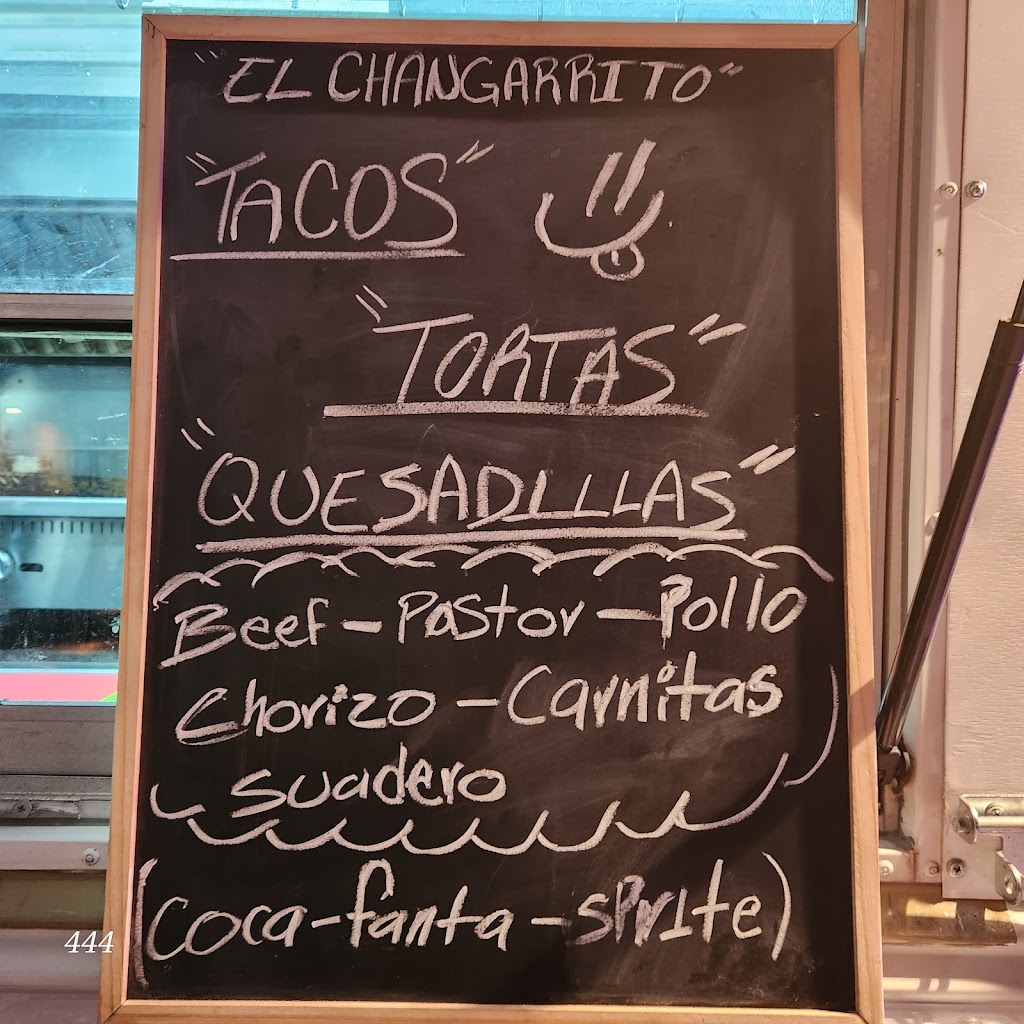 "EL CHANGARRITO"
"TACOS"
"TORTAS"
"QUESADILLAS"
Beef - Pastor - Pollo
Chorizo - Carnitas
suadero
(coca - fanta - sprite)
444